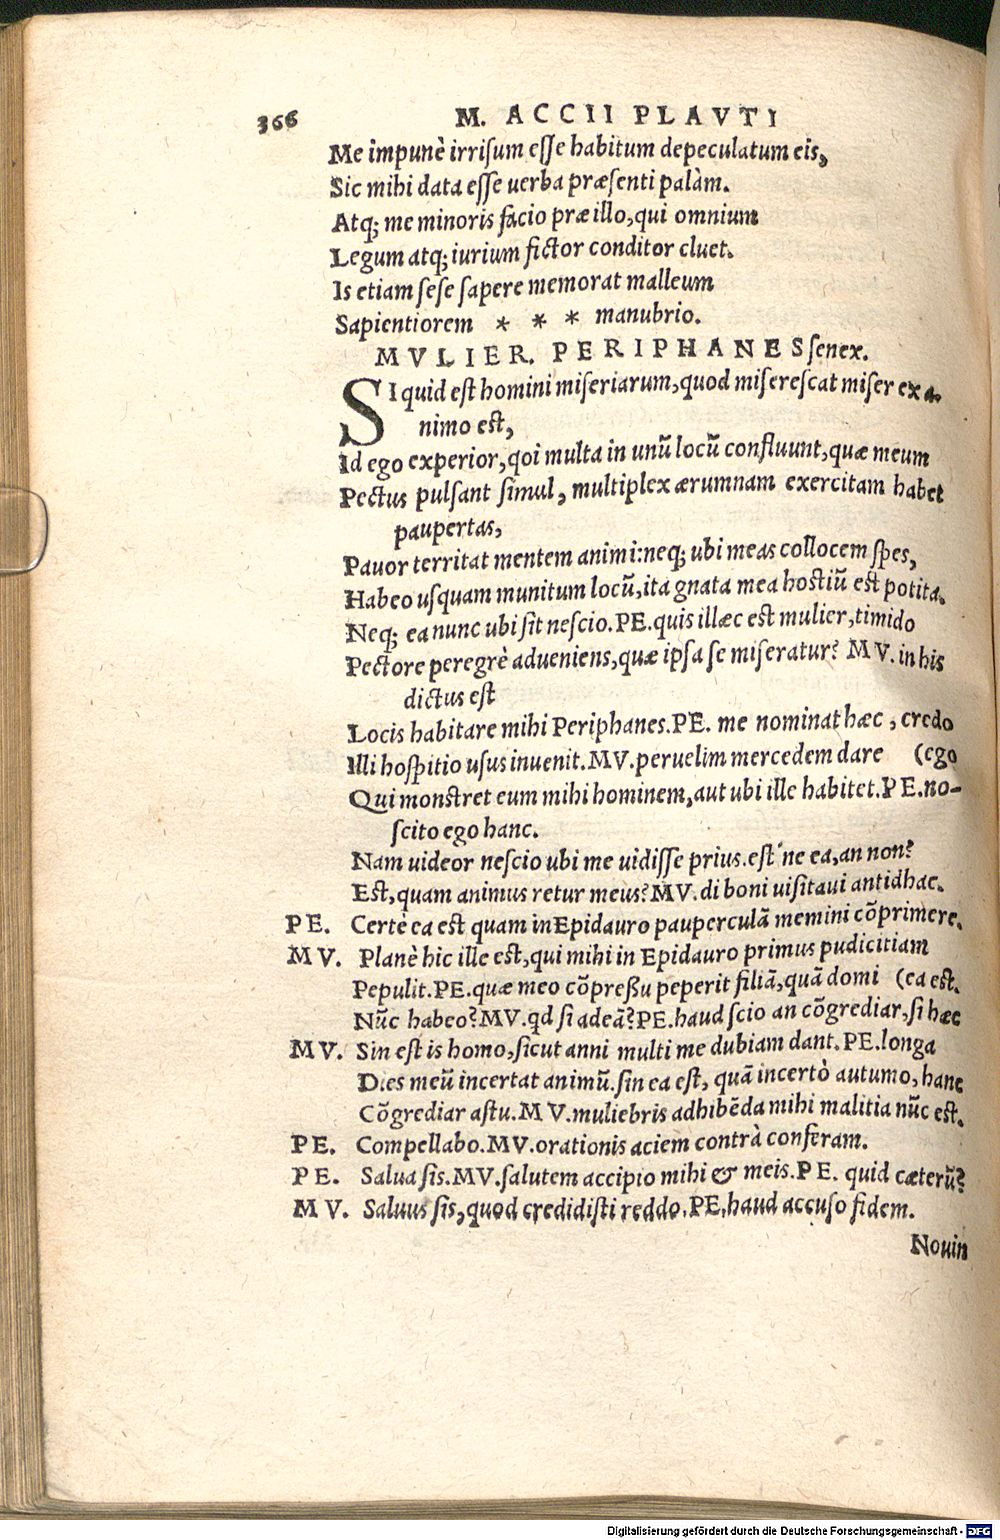 366 M. ACCII PLAVTI
Me impunè irrisum esse habitum depeculatum eis,
Sic mihi data esse uerba præsenti palàm.
Atq; me minoris facio præ illo, qui omnium
Legum atq; iurium fictor conditor cluet.
Is etiam sese sapere memorat malleum
Sapientiorem * * * manubrio.
MVLIER. PERIPHANES senex.
SI quid est homini miseriarum, quod miserescat miser ex a-
nimo est,
Id ego experior, qoi multa in unũ locũ confluunt, quæ meum
Pectus pulsant simul, multiplex ærumnam exercitam habet
paupertas,
Pauor territat mentem animi: neq; ubi meas collocem spes,
Habeo usquam munitum locũ, ita gnata mea hostiũ est potita.
Neq; ea nunc ubi sit nescio. PE. quis illæc est mulier, timido
Pectore peregrè adueniens, quæ ipsa se miseratur? MV. in his
dictus est
Locis habitare mihi Periphanes. PE. me nominat hæc, credo
Illi hospitio usus inuenit. MV. peruelim mercedem dare (ego
Qui monstret eum mihi hominem, aut ubi ille habitet. PE. no-
scito ego hanc.
Nam uideor nescio ubi me uidisse prius. est'ne ea, an non?
Est, quam animus retur meus? MV. di boni uisitaui antidhac.
PE. Certè ea est quam in Epidauro pauperculã memini cõprimere.
MV. Planè hic ille est, qui mihi in Epidauro primus pudicitiam
Pepulit. PE. quæ meo cõpreßu peperit filiã, quã domi (ea est.
Nũc habeo? MV. qd si adeã? PE. haud scio an cõgrediar, si hæc
MV. Sin est is homo, sicut anni multi me dubiam dant. PE. longa
Dies meũ incertat animũ. sin ea est, quã incertò autumo, hanc
Cõgrediar astu. MV. muliebris adhibẽda mihi malitia nũc est.
PE. Compellabo. MV. orationis aciem contrà conferam.
PE. Salua sis. MV. salutem accipio mihi & meis. PE. quid cæterũ?
MV. Saluus sis, quod credidisti reddo. PE, haud accuso fidem.
Nouin
Digitalisierung gefördert durch die Deutsche Forschungsgemeinschaft - DFG